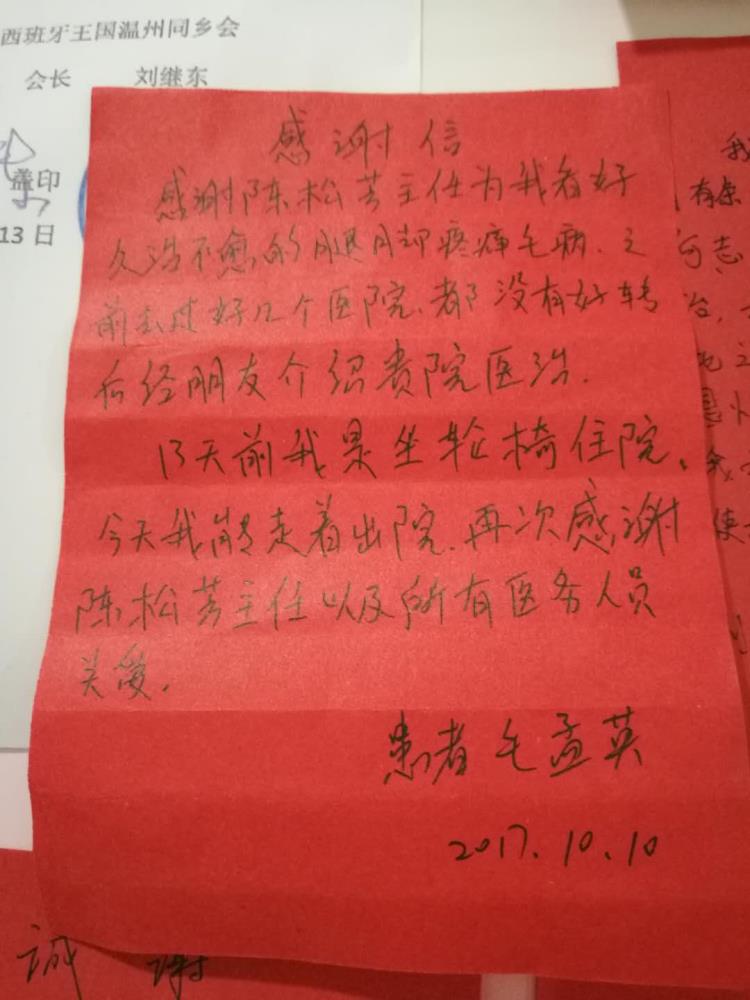 西班牙王国温州同乡会
会长 刘继东
盖印
13日
感谢信
感谢陈松芳主任为我看好
久治不愈的腿脚疼痛毛病、之
前去过好几个医院、都没有好转
后经朋友介绍贵院医治.
13天前我是坐轮椅住院、
今天我能走着出院、再次感谢
陈松芳主任以及所有医务人员
关爱.
患者 毛孟英
2017.10.10
我
有余
何志
治,
使
诚 谢